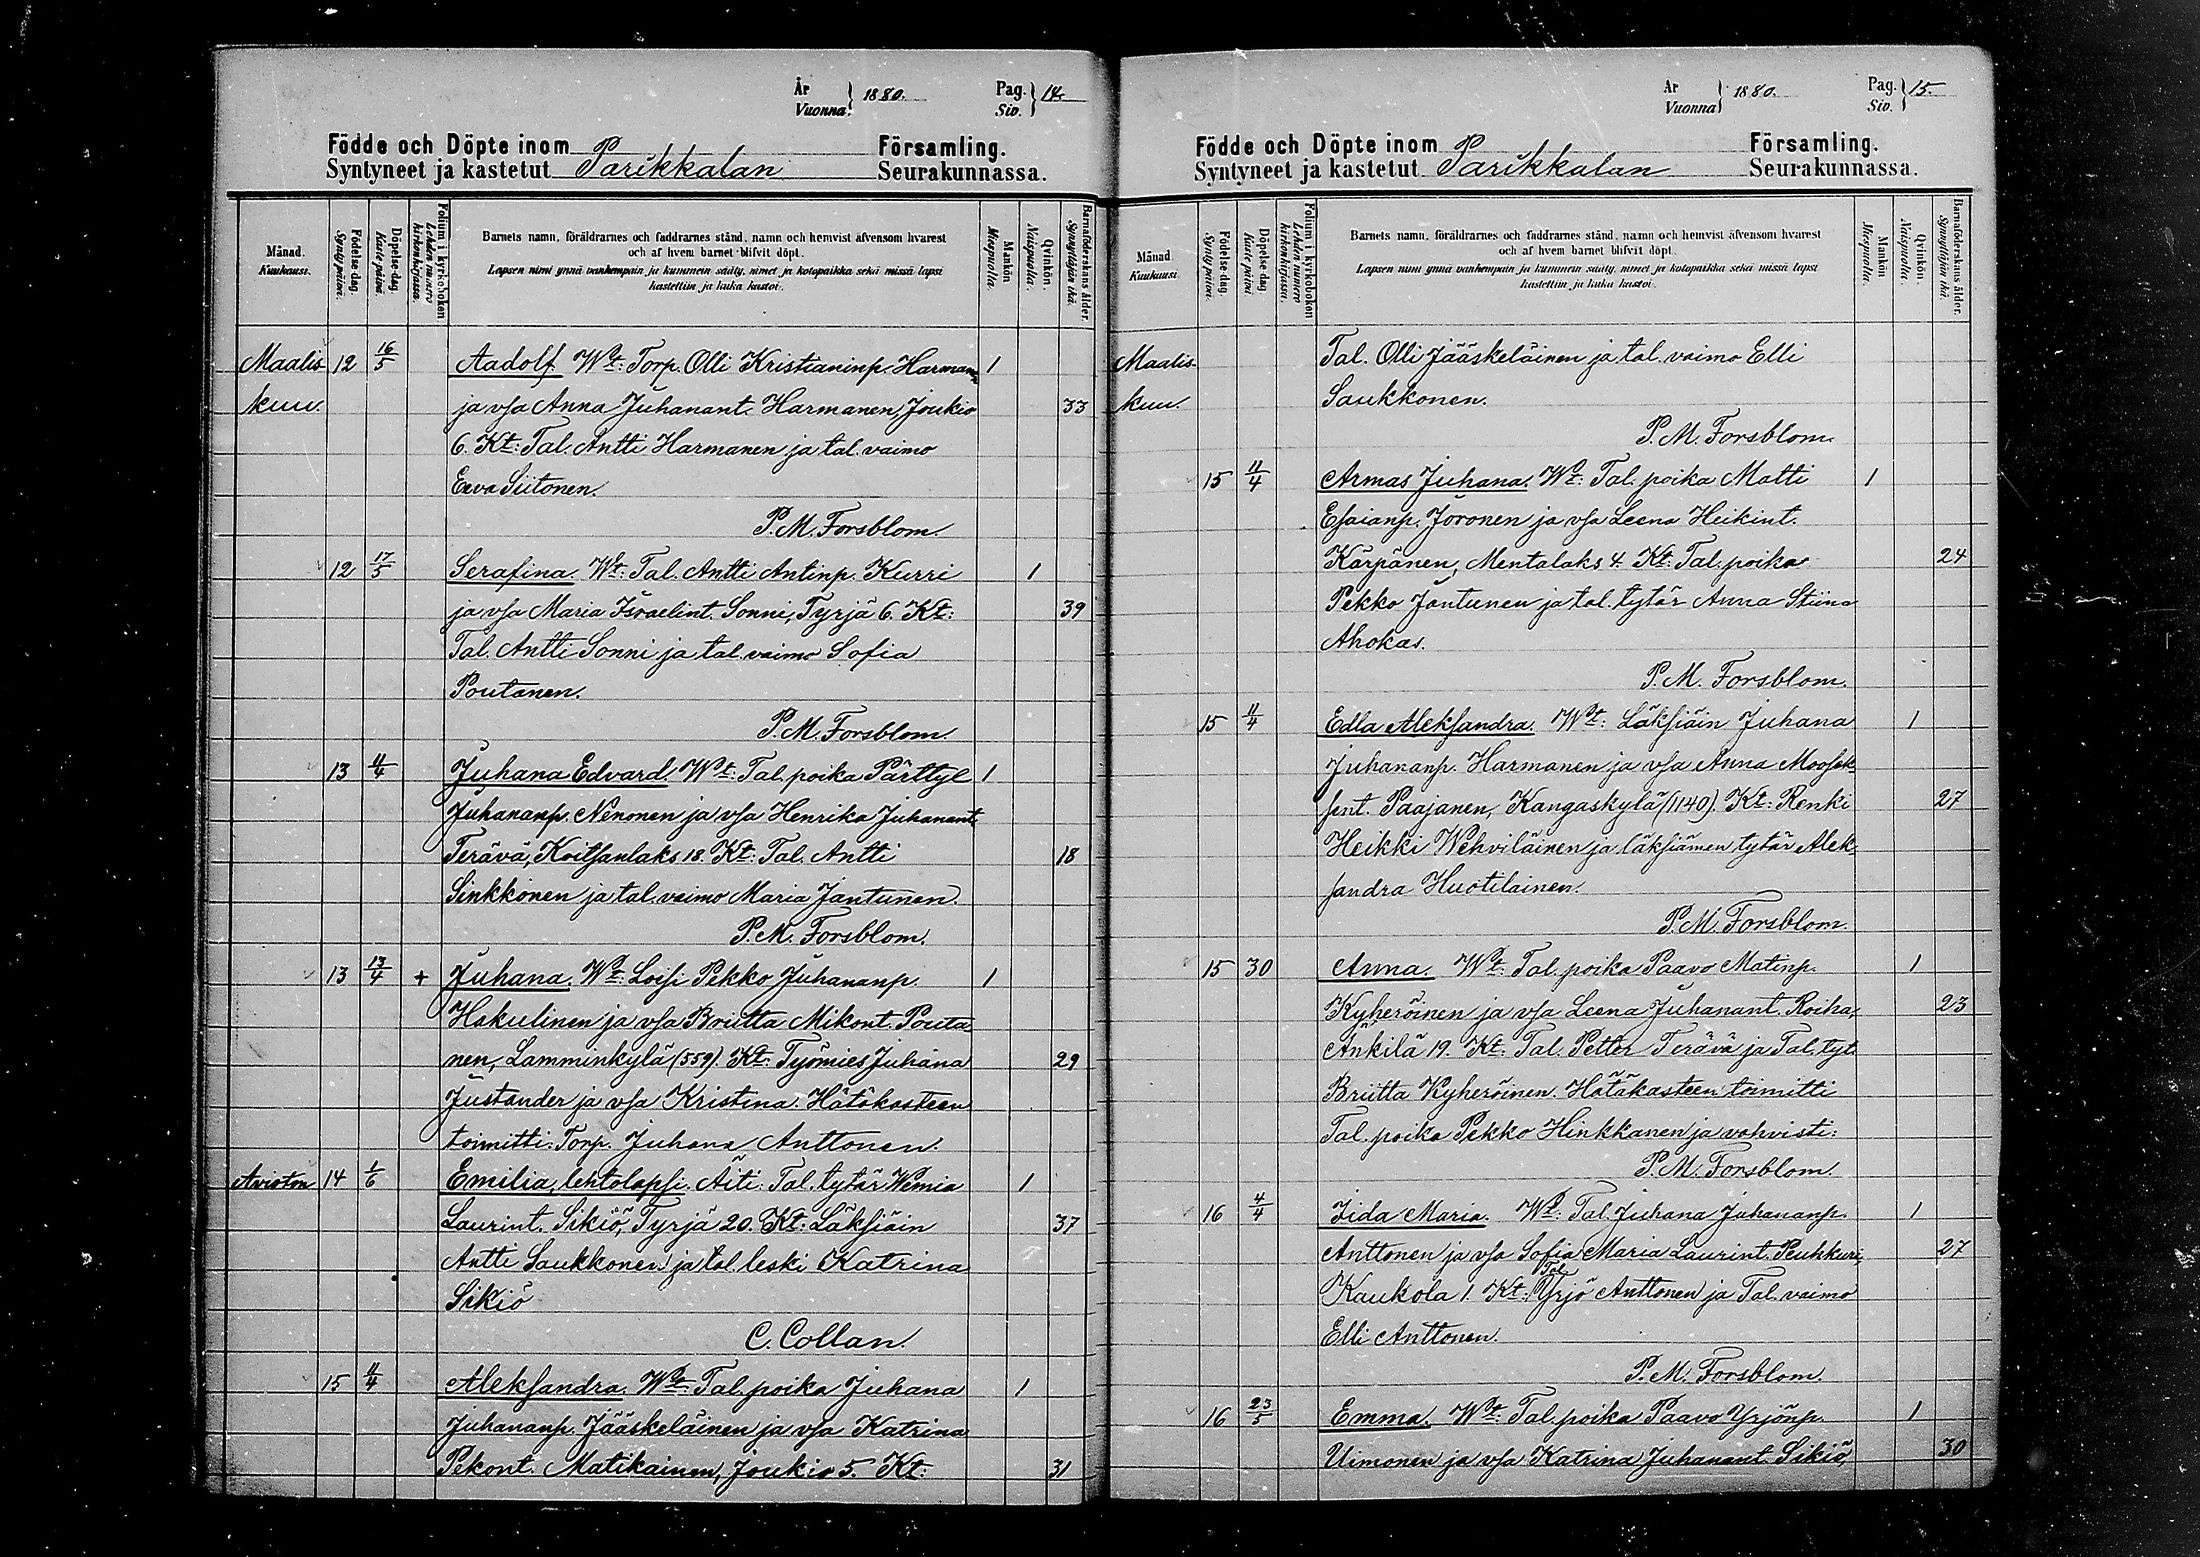 År
Vuonna } 1880.
Pag.
Siv. } 14.
Födde och Döpte inom Församling.
Syntyneet ja kastetut Parikkalan Seurakunnassa.
Månad. Kuukausi.
Födelse-dag. Synty päivä.
Döpelse-dag. Kaste päivä.
Folium i kyrkoboken Lehden numero kirkonkirjassa.
Barnets namn, föräldrarnes och faddrarnes stånd, namn och hemvist äfvensom hvarest
och af hvem barnet blifvit döpt.
Lapsen nimi ynnä vanhempain ja kummein sääty, nimet ja kotopaikka sekä missä lapsi
kastettiin ja kuka kastoi.
Mankön Miespuolta.
Qvinkön. Naispuolta.
Barnaföderskans ålder. Synnyttäjän ikä.
Maalis- 12 16/5 Aadolf. Wt: Torp. Olli Kristianinp. Harmanen 1
kuu. ja vsa Anna Juhanant. Harmanen, Joukio 33
6. Kt: Tal. Antti Harmanen ja tal. vaimo
Eeva Siitonen.
P. M. Forsblom.
12 17/5 Serafina. Wt: Tal. Antti Antinp. Kurri 1
ja vsa Maria Israelint. Sonni, Tyrjä 6. Kt: 39
Tal. Antti Sonni ja tal. vaimo Sofia
Poutanen.
P. M. Forsblom.
13 11/4 Juhana Edvard. Wt: Tal. poika Pärttyl 1
Juhananp. Nenonen ja vsa Henrika Juhanant.
Terävä, Koitsanlaks 18. Kt: Tal. Antti 18
Sinkkonen ja tal. vaimo Maria Jantunen.
P. M. Forsblom.
13 13/4 + Juhana. Wt: Loisi Pekko Juhananp. 1
Hakulinen ja vsa Briitta Mikont. Pouta
nen, Lamminkylä (559). Kt: Työmies Juhana 29
Justander ja vsa Kristina. Hätäkasteen
toimitti: Torp. Juhana Anttonen.
Avioton 14 1/6 Emilia, lehtolapsi. Äiti: Tal. tytär Wemia 1
Laurint. Sikiö, Tyrjä 20. Kt: Läksiäin 37
Antti Saukkonen ja tal. leski Katrina
Sikiö
C. Collan.
15 11/4 Aleksandra. Wt: Tal. poika Juhana 1
Juhananp. Jääskeläinen ja vsa Katrina
Pekont. Matikainen, Joukio 5. Kt: 31
År
Vuonna } 1880.
Pag.
Siv. } 15.
Födde och Döpte inom Församling.
Syntyneet ja kastetut Parikkalan Seurakunnassa.
Månad Kuukausi
Födelse-dag. Synty päivä.
Döpelse-dag Kaste päivä.
Folium i kyrkoboken Lehden numero kirkonkirjassa.
Barnets namn, föräldrarnes och faddrarnes stånd, namn och hemvist äfvensom hvarest
och af hvem barnet blifvit döpt.
Lapsen nimi ynnä vanhempain ja kummein sääty, nimet ja kotopaikka sekä missä lapsi
kastettiin ja kuka kastoi.
Mankön Miespuolta.
Qvinkön. Naispuolta.
Barnaföderskans ålder. Synnyttäjän ikä.
Maalis- Tal. Olli Jääskeläinen ja tal. vaimo Elli
kuu. Saukkonen.
P. M. Forsblom.
15 11/4 Armas Juhana. Wt: Tal. poika Matti 1
Esaianp. Joronen ja vsa Leena Heikint.
Kärpänen, Mentalaks 4. Kt: Tal. poika 24
Pekko Jantunen ja tal. tytär Anna Stiina
Ahokas.
P. M. Forsblom.
15 11/4 Edla Aleksandra. Wt: Läksiäin Juhana 1
Juhananp. Harmanen ja vsa Anna Moosek-
sent. Paajanen, Kangaskylä (1140). Kt: Renki 27
Heikki Wehviläinen ja läksiämen tytär Alek-
sandra Huotilainen.
P. M. Forsblom.
15 30 Anna. Wt: Tal. poika Paavo Matinp. 1
Kyheröinen ja vsa Leena Juhanant. Roiha, 23
Änkilä 19. Kt: Tal. Petter Terävä ja Tal. tyt.
Briitta Kyheröinen. Hätäkasteen toimitti
Tal. poika Pekko Hinkkanen ja vahvisti:
P. M. Forsblom.
16 4/4 Iida Maria. Wt: Tal. Juhana Juhananp. 1
Anttonen ja vsa Sofia Maria Laurint. Peuhkuri, 27
Kaukola 1. Kt: Tal. Yrjö Anttonen ja Tal. vaimo
Elli Anttonen.
P. M. Forsblom.
16 23/5 Emma. Wt: Tal. poika Paavo Yrjönp. 1
Uimonen ja vsa Katrina Juhanant. Sikiö, 30